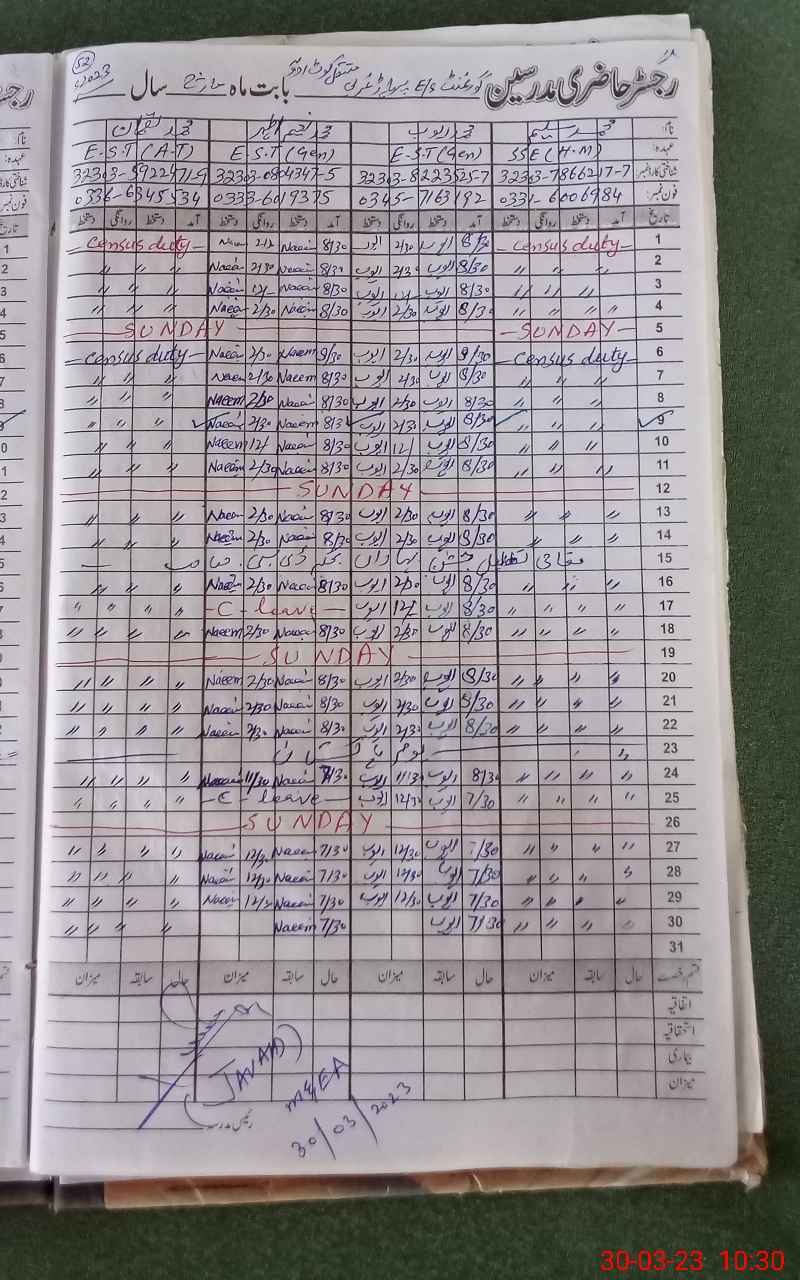 52
رجسٹر حاضری مدرسین گورنمنٹ E/S بابت ماہ مارچ سال 2023
نام: محمد سلیم محمد ایوب محمد نعیم اختر محمد لقمان
عہدہ: SSE (H.M) E.S.T (Gen) E.S.T (Gen) E.S.T (A.T)
فون نمبر: 0331-6006984 0345-7163192 0333-6019375 0336-6345534
تاریخ آمد دستخط روانگی دستخط آمد دستخط روانگی دستخط آمد دستخط روانگی دستخط آمد دستخط روانگی دستخط
1 Census duty 8/30 ایوب 2/30 ایوب 8/30 Naeem 2/30 Naeem Census duty
2 〃 〃 8/30 ایوب 2/30 ایوب 8/30 Naeem 2/30 Naeem 〃 〃
3 〃 〃 〃 8/30 ایوب 12/- ایوب 8/30 Naeem 12/- Naeem 〃 〃 〃
4 〃 〃 〃 〃 8/30 ایوب 2/30 ایوب 8/30 Naeem 2/30 Naeem 〃 〃 〃
5 SUNDAY SUNDAY
6 Census duty 9/30 ایوب 2/30 ایوب 9/30 Naeem 2/30 Naeem Census duty
7 〃 〃 〃 8/30 ایوب 2/30 ایوب 8/30 Naeem 2/30 Naeem 〃 〃 〃
8 〃 〃 〃 8/30 ایوب 2/30 ایوب 8/30 Naeem 2/30 Naeem 〃 〃 〃
9 〃 〃 〃 8/30 ایوب 2/30 ایوب 8/30 Naeem 2/30 Naeem 〃 〃 〃
10 〃 〃 〃 8/30 ایوب 12/ ایوب 8/30 Naeem 12/ Naeem 〃 〃 〃
11 〃 〃 〃 8/30 ایوب 2/30 ایوب 8/30 Naeem 2/30 Naeem 〃 〃 〃
12 SUNDAY
13 〃 〃 〃 8/30 ایوب 2/30 ایوب 8/30 Naeem 2/30 Naeem 〃 〃 〃
14 〃 〃 〃 8/30 ایوب 2/30 ایوب 8/30 Naeem 2/30 Naeem 〃 〃 〃
15 مقامی تعطیل جشن بہاراں بحکم ڈی سی صاحب
16 〃 〃 〃 8/30 ایوب 2/30 ایوب 8/30 Naeem 2/30 Naeem 〃 〃 〃
17 〃 〃 〃 〃 8/30 ایوب 12/ ایوب C-leave 〃 〃 〃 〃
18 〃 〃 〃 〃 8/30 ایوب 2/30 ایوب 8/30 Naeem 2/30 Naeem 〃 〃 〃 〃
19 SUNDAY
20 〃 〃 〃 〃 8/30 ایوب 2/30 ایوب 8/30 Naeem 2/30 Naeem 〃 〃 〃 〃
21 〃 〃 〃 〃 8/30 ایوب 2/30 ایوب 8/30 Naeem 2/30 Naeem 〃 〃 〃 〃
22 〃 〃 〃 〃 8/30 ایوب 2/30 ایوب 8/30 Naeem 2/30 Naeem 〃 〃 〃 〃
23 یوم پاکستان
24 〃 〃 〃 〃 8/30 ایوب 11/30 ایوب 7/30 Naeem 11/30 Naeem 〃 〃 〃 〃
25 〃 〃 〃 〃 7/30 ایوب 12/30 ایوب C-leave 〃 〃 〃 〃
26 SUNDAY
27 〃 〃 〃 〃 7/30 ایوب 12/30 ایوب 7/30 Naeem 12/30 Naeem 〃 〃 〃 〃
28 〃 〃 〃 〃 7/30 ایوب 12/30 ایوب 7/30 Naeem 12/30 Naeem 〃 〃 〃 〃
29 〃 〃 〃 〃 7/30 ایوب 12/30 ایوب 7/30 Naeem 12/30 Naeem 〃 〃 〃 〃
30 〃 〃 〃 〃 7/30 ایوب 7/30 Naeem 〃 〃 〃 〃
31
قسم رخصت حال سابقہ میزان حال سابقہ میزان حال سابقہ میزان حال سابقہ میزان
اتفاقیہ
استحقاقیہ
بیماری
میزان
(JAVAID)
MEA
30/03/2023
رئیس مدرسہ
30-03-23 10:30